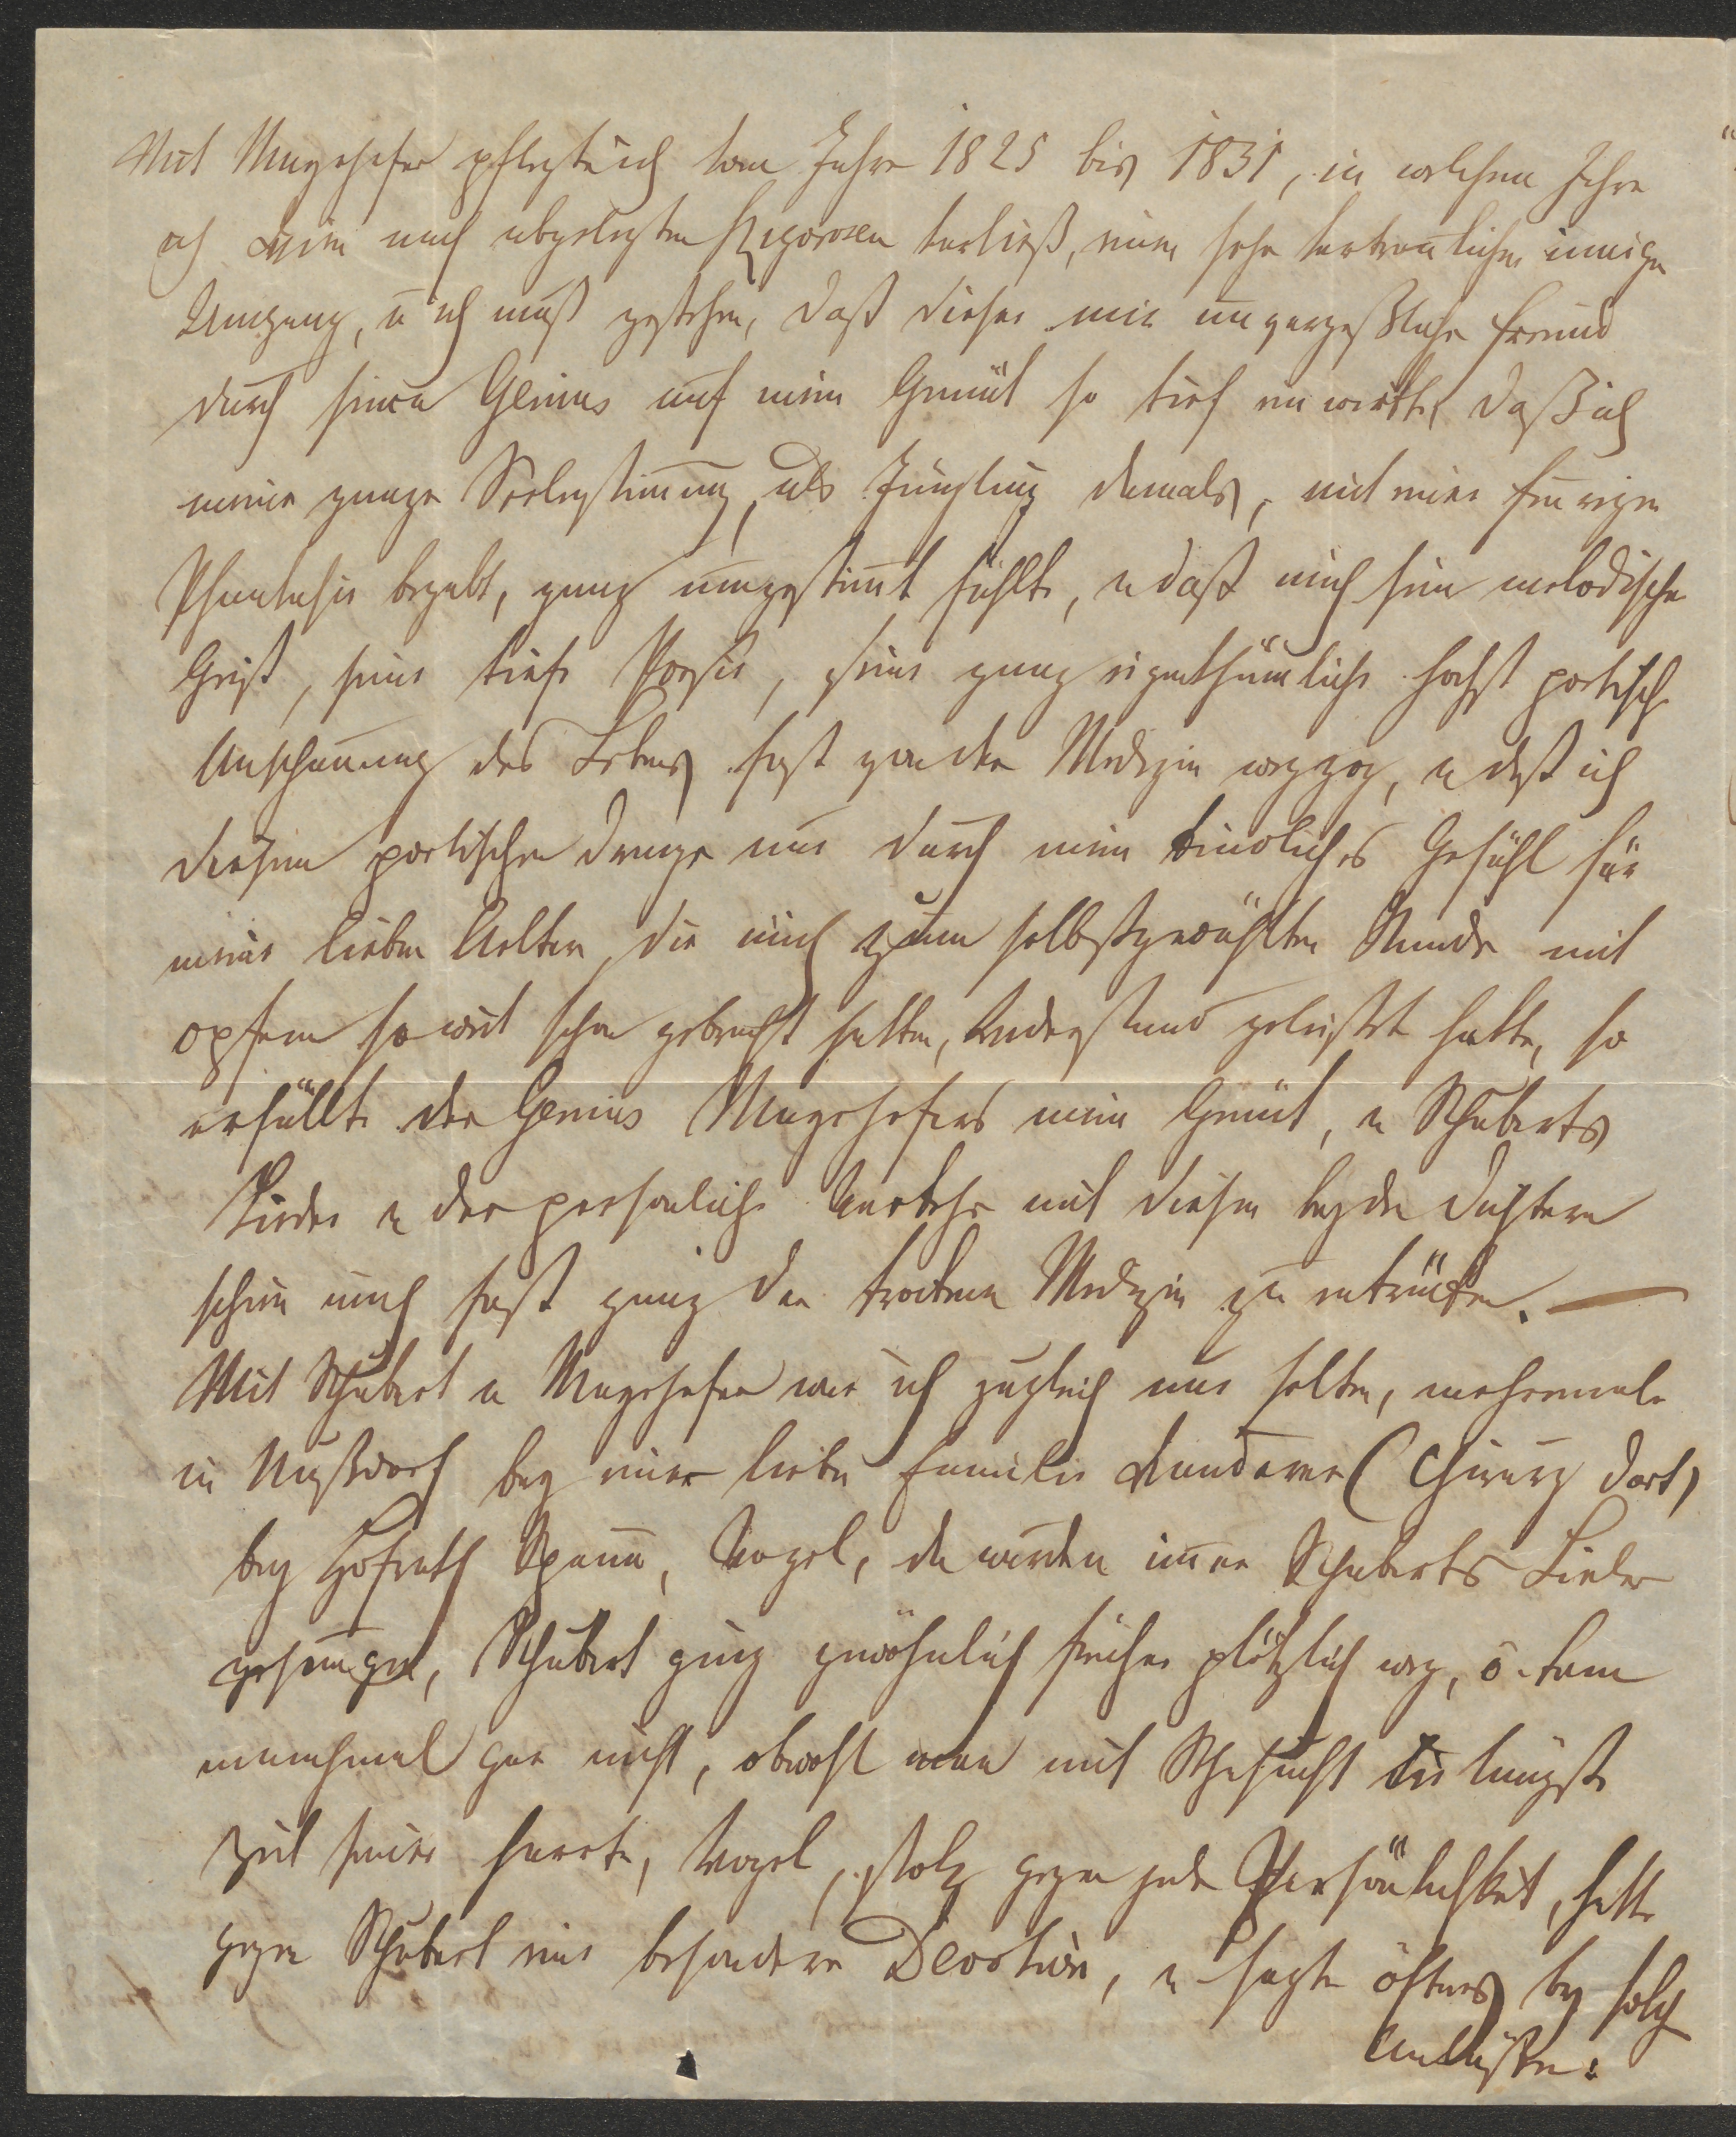 Mit Mayrhofer pflegte ich vom Jahre 1825 bis 1831, in welchem Jahre
ich Wien nach abgelegten Rigorosen verließ, einen sehr vertraulichen innigen
Umgang, u ich muß gestehen, daß dieser mir unvergeßliche Freund
durch seinen Genius auf mein Gemüt so tief einwirkte, daß ich
meine ganze Seelenstimmung, als Jüngling damals, mit einer feurigen
Phantasie begabt, ganz umgestimmt fühlte, u daß mich sein melodischer
Geist, seine tiefe Poesie, seine ganz eigenthümliche höchst poetische
Anschauung des Lebens fast von der Medizin wegzog, u daß ich
diesem poetischen Drange nur durch mein kindliches Gefühl für
meine lieben Aeltern, die mich zum selbstgewählten Stande mit
Opfern so weit schon gebracht hatten, Widerstand geleistet hatte, so
erfüllte der Genius Mayrhofers mein Gemüt, u Schuberts
Lieder u der persönliche Verkehr mit diesen beyden Dichtern
schien mich fast ganz der trockenen Medizin zu entrücken. —
Mit Schubert u Mayrhofer war ich zugleich nur selten, mehremale
in Nußdorf bey einer lieben Familie (Chirurg dort)
bey Hofrath Spaun, Vogel, da wurden immer Schuberts Lieder
gesungen, Schubert ging gewöhnlich früher plötzlich weg, o. kam
manchmal gar nicht, obwohl man mit Sehnsucht die längste
Zeit seiner harrte, Vogel, stolz gegen jede Persönlichkeit, hatte
gegen Schubert eine besondere Devotion, u sagte öfters bey solch
Anlässen: